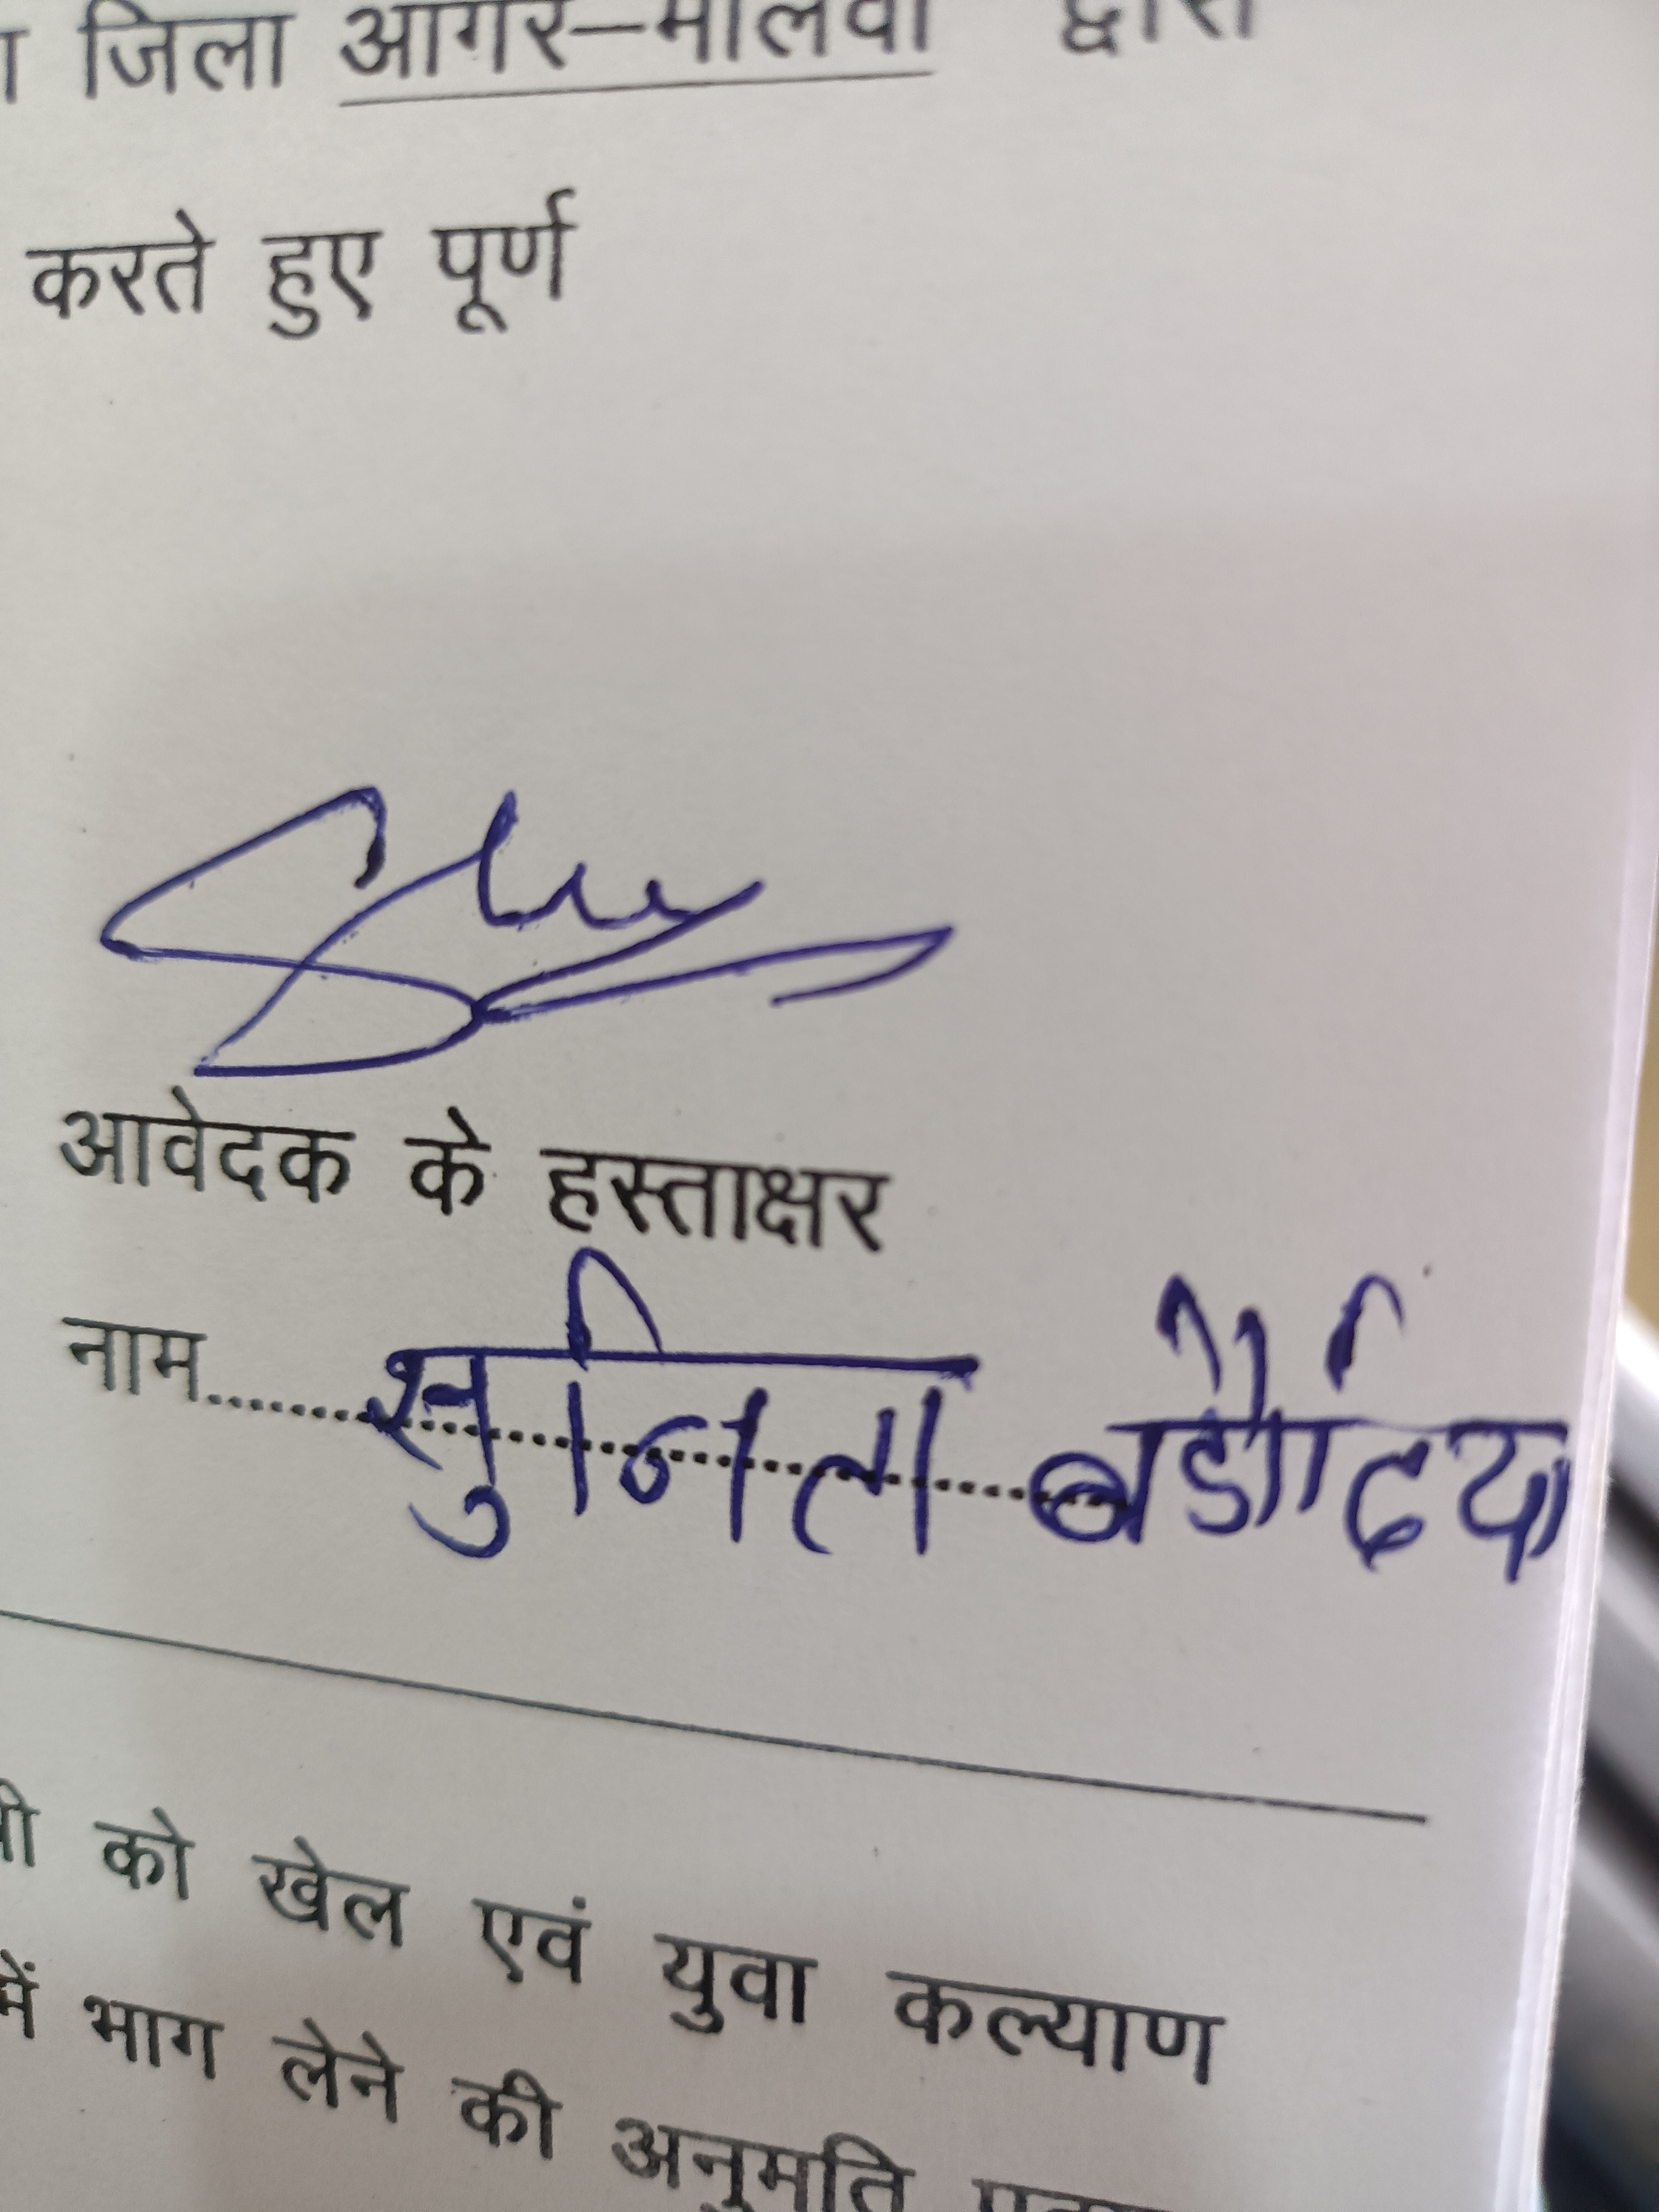 जिला आगर–मालवा द्वारा
करते हुए पूर्ण
आवेदक के हस्ताक्षर
नाम............ सुनिता
को खेल एवं युवा कल्याण
में भाग लेने की अनुमति